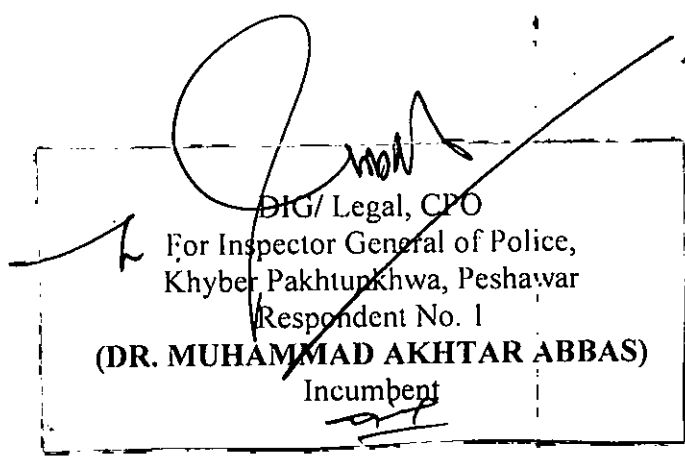 DIG/ Legal, CPO
For Inspector General of Police,
Khyber Pakhtunkhwa, Peshawar
Respondent No. 1
(DR. MUHAMMAD AKHTAR ABBAS)
Incumbent